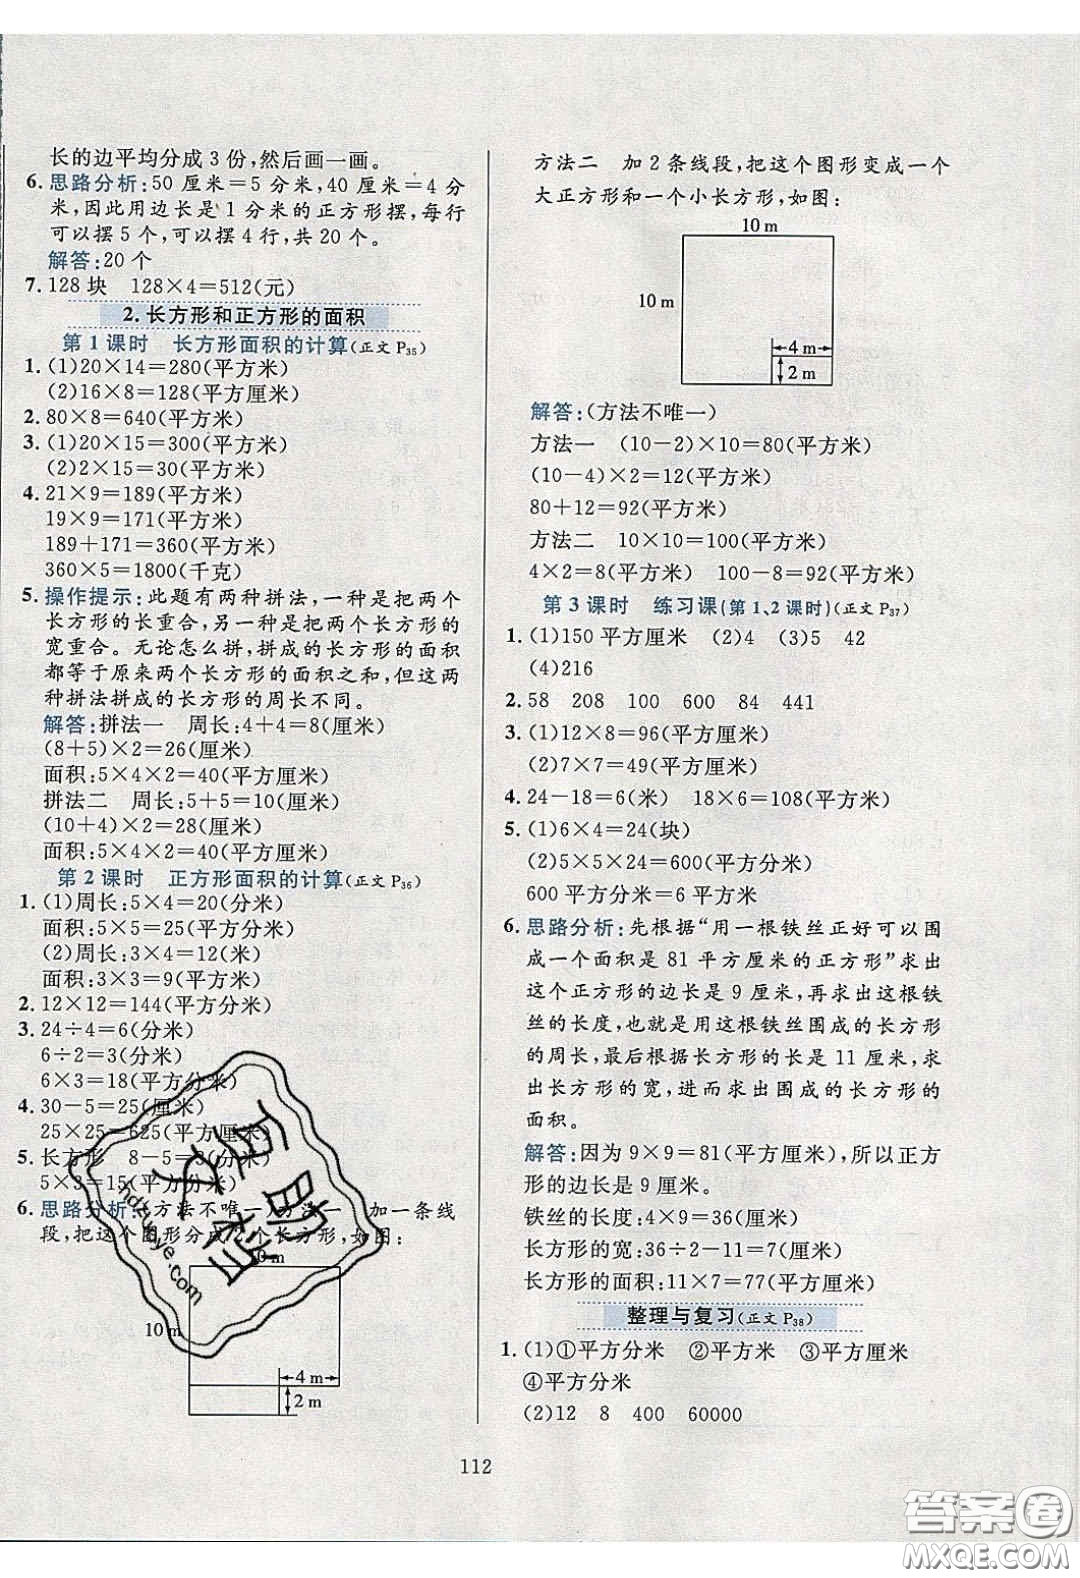 长的边平均分成3份,然后画一画。
6. 思路分析:50厘米=5分米,40厘米=4分
米,因此用边长是1分米的正方形摆,每行
可以摆5个,可以摆4行,共20个。
解答:20个
7. 128块 128×4=512(元)
2.长方形和正方形的面积
第1课时 长方形面积的计算(正文P35)
1. (1)20×14=280(平方米)
(2)16×8=128(平方厘米)
2. 80×8=640(平方米)
3. (1)20×15=300(平方米)
(2)2×15=30(平方米)
4. 21×9=189(平方米)
19×9=171(平方米)
189+171=360(平方米)
360×5=1800(千克)
5. 操作提示:此题有两种拼法,一种是把两个
长方形的长重合,另一种是把两个长方形的
宽重合。无论怎么拼,拼成的长方形的面积
都等于原来两个长方形的面积之和,但这两
种拼法拼成的长方形的周长不同。
解答:拼法一 周长:4+4=8(厘米)
(8+5)×2=26(厘米)
面积:5×4×2=40(平方厘米)
拼法二 周长:5+5=10(厘米)
(10+4)×2=28(厘米)
面积:5×4×2=40(平方厘米)
第2课时 正方形面积的计算(正文P36)
1. (1)周长:5×4=20(分米)
面积:5×5=25(平方分米)
(2)周长:3×4=12(米)
面积:3×3=9(平方米)
2. 12×12=144(平方分米)
3. 24÷4=6(分米)
6÷2=3(分米)
6×3=18(平方分米)
4. 30-5=25(分米)
25×25=625(平方分米)
5. 长方形 8-5=3(分米)
5×3=15(平方分米)
6. 思路分析:(方法不唯一)方法一 加一条线
段,把这个图形分成2个长方形,如图:
10 m
10 m
4 m
2 m
方法二 加2条线段,把这个图形变成一个
大正方形和一个小长方形,如图:
10 m
10 m
4 m
2 m
解答:(方法不唯一)
方法一 (10-2)×10=80(平方米)
(10-4)×2=12(平方米)
80+12=92(平方米)
方法二 10×10=100(平方米)
4×2=8(平方米) 100-8=92(平方米)
第3课时 练习课(第1、2课时)(正文P37)
1. (1)150平方厘米 (2)4 (3)5 42
(4)216
2. 58 208 100 600 84 441
3. (1)12×8=96(平方米)
(2)7×7=49(平方厘米)
4. 24-18=6(米) 18×6=108(平方米)
5. (1)6×4=24(块)
(2)5×5×24=600(平方分米)
600平方分米=6平方米
6. 思路分析:先根据“用一根铁丝正好可以围
成一个面积是81平方厘米的正方形”求出
这个正方形的边长是9厘米,再求出这根铁
丝的长度,也就是用这根铁丝围成的长方形
的周长,最后根据长方形的长是11厘米,求
出长方形的宽,进而求出围成的长方形的
面积。
解答:因为9×9=81(平方厘米),所以正方
形的边长是9厘米。
铁丝的长度:4×9=36(厘米)
长方形的宽:36÷2-11=7(厘米)
长方形的面积:11×7=77(平方厘米)
整理与复习(正文P38)
1. (1)①平方分米 ②平方米 ③平方厘米
④平方分米
(2)12 8 400 60000
112
答案圈
MXQE.COM